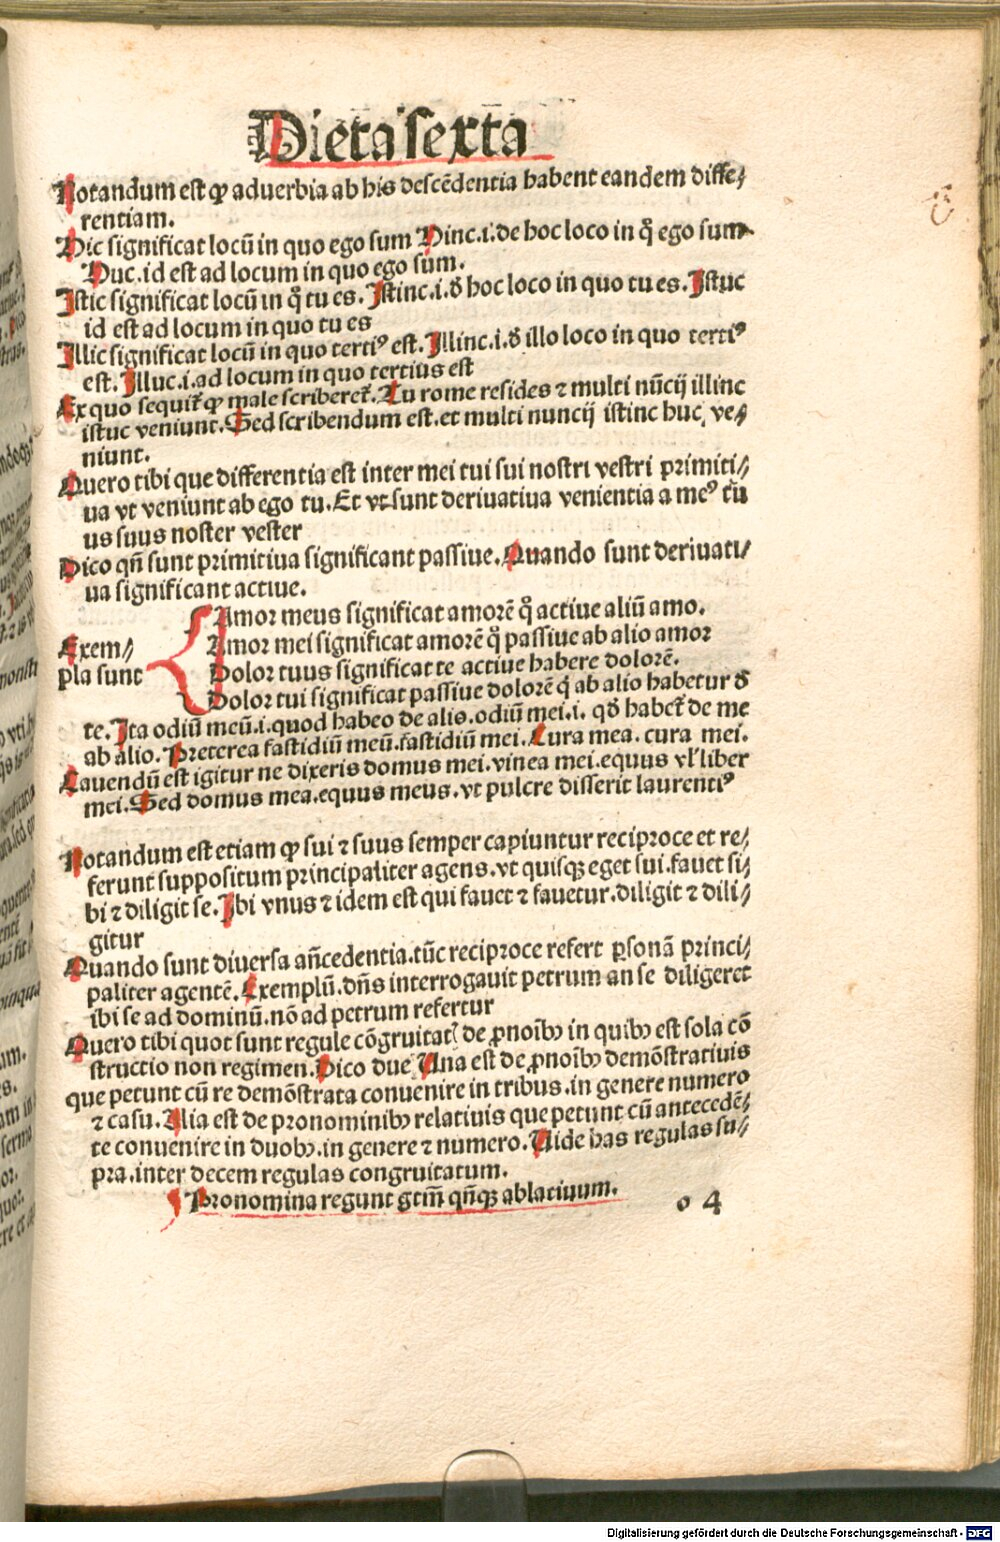 Dieta sexta
Notandum est ꝙ aduerbia ab his descēdentia habent eandem diffe⸗
rentiam.
Hic significat locū in quo ego sum Hinc.i.de hoc loco in q̊ ego sum
Huc.id est ad locum in quo ego sum.
Istic significat locū in q̊ tu es. Istinc.i.đ hoc loco in quo tu es. Istuc
id est ad locum in quo tu es
Illic significat locū in quo tertiꝰ est. Illinc.i.đ illo loco in quo tertiꝰ
est. Illuc.i.ad locum in quo tertius est
Ex quo sequit̃ ꝙ male scriberet̃. Tu rome resides ⁊ multi nūcij illinc
istuc veniunt. Sed scribendum est.et multi nuncij istinc huc ve⸗
niunt.
Quero tibi que differentia est inter mei tui sui nostri vestri primiti⸗
ua vt veniunt ab ego tu. Et vt sunt deriuatiua venientia a meꝰ tu
us suus noster vester
Dico qñ sunt primitiua significant passiue. Quando sunt deriuati⸗
ua significant actiue.
Exem⸗
pla sunt
Amor meus significat amorē q̊ actiue aliū amo.
Amor mei significat amorē q̊ passiue ab alio amor
Dolor tuus significat te actiue habere dolorē.
Dolor tui significat passiue dolorē q̊ ab alio habetur đ
te. Ita odiū meū.i.quod habeo de alio.odiū mei.i. qđ habet̃ de me
ab alio. Preterea fastidiū meū.fastidiū mei. Cura mea. cura mei.
Cauendū est igitur ne dixeris domus mei.vinea mei.equus vl' liber
mei. Sed domus mea.equus meus.vt pulcre disserit laurentiꝰ
Notandum est etiam ꝙ sui ⁊ suus semper capiuntur reciproce et re⸗
ferunt suppositum principaliter agens.vt quisqꝫ eget sui.fauet si⸗
bi ⁊ diligit se. Ibi vnus ⁊ idem est qui fauet ⁊ fauetur.diligit ⁊ dili⸗
gitur
Quando sunt diuersa añcedentia.tūc reciproce refert ꝑsonā princi⸗
paliter agentē. Exemplū.dñs interrogauit petrum an se diligeret
ibi se ad dominū.nō ad petrum refertur
Quero tibi quot sunt regule cōgruitatꝭ de ꝓnoībꝫ in quibꝫ est sola cō
structio non regimen. Dico due Una est de ꝓnoībꝫ demōstratiuis
que petunt cū re demōstrata conuenire in tribus.in genere numero
⁊ casu. Alia est de pronominibꝫ relatiuis que petunt cū antecedē⸗
te conuenire in duobꝫ.in genere ⁊ numero. Uide has regulas su⸗
pra.inter decem regulas congruitatum.
¶ Pronomina regunt gtm̄ qñqꝫ ablatiuum.
o 4
Digitalisierung gefördert durch die Deutsche Forschungsgemeinschaft - DFG